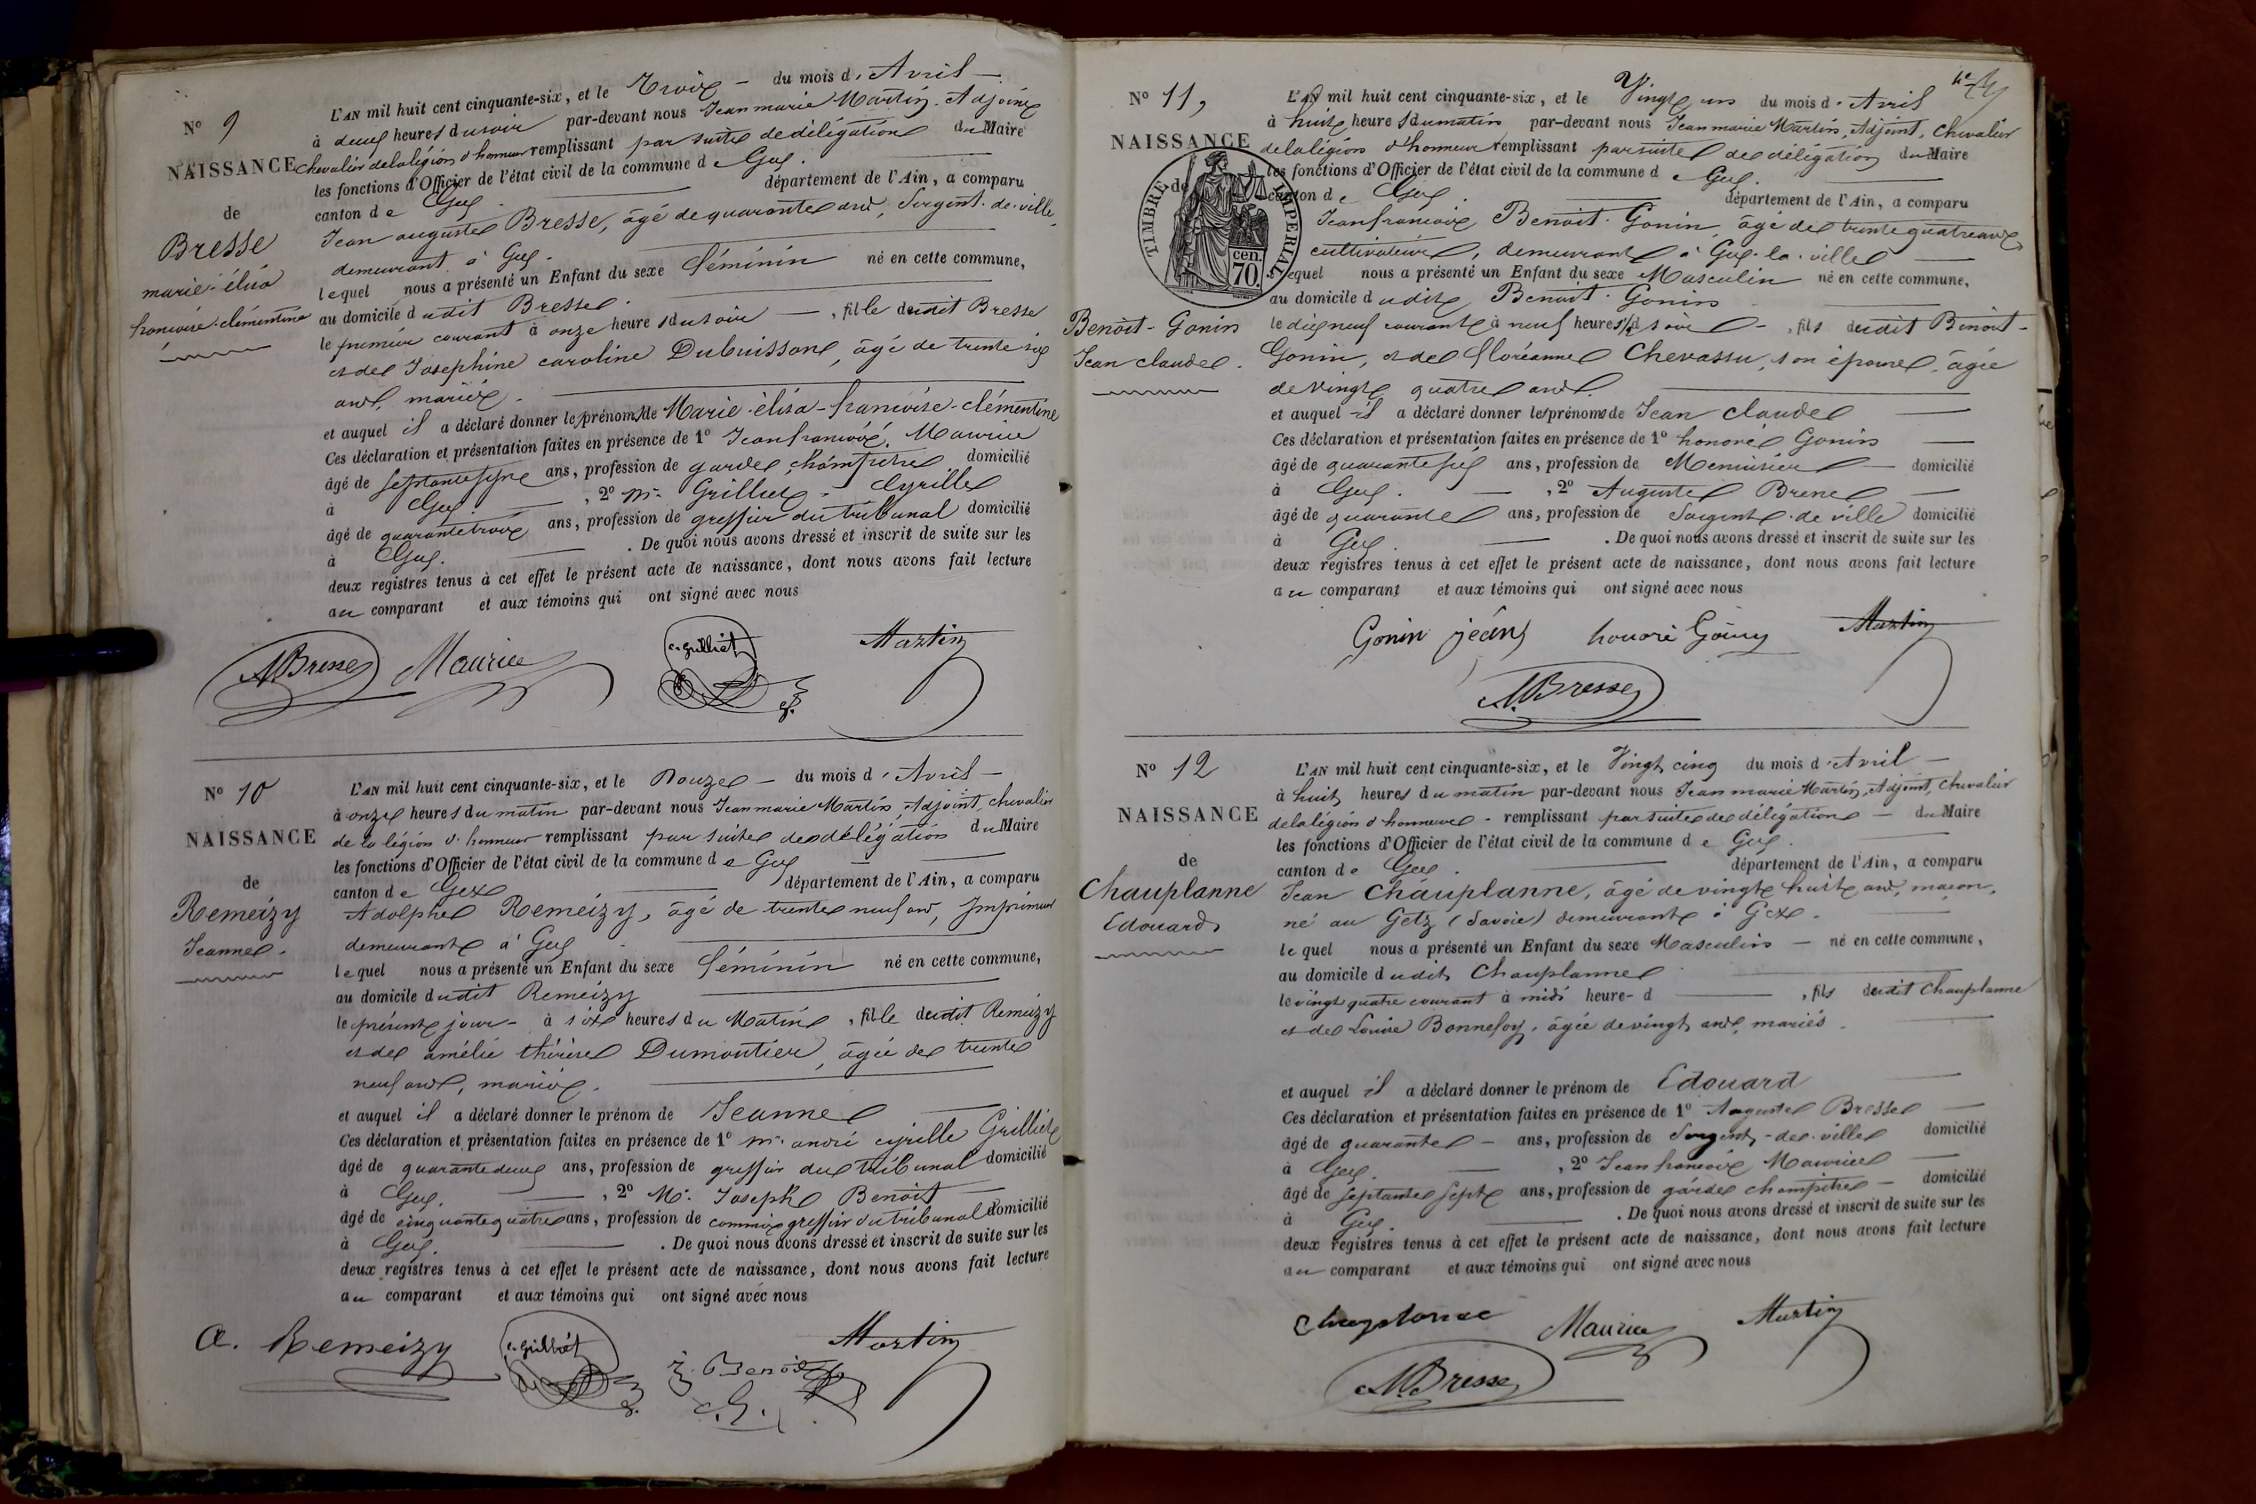 L'AN mil huit cent cinquante-six, et le Trois - du mois d'Avril -
N° 9
à deux heures du soir par-devant nous Jean marie Martin, Adjoint
NAISSANCE
chevalier de la légion d'honneur remplissant par suite de délégation du Maire
les fonctions d'Officier de l'état civil de la commune de Gex.
canton de Gex. département de l'Ain, a comparu
de
Jean auguste Bresse, âgé de quarante ans, Sergent-de-ville,
Bresse
demeurant à Gex.
marie-élisa
lequel nous a présenté un Enfant du sexe Féminin né en cette commune,
françoise-clémentine
au domicile dudit Bresse.
le premier courant à onze heures du soir - , fille dudit Bresse
et de Joséphine caroline Dubuisson, âgé de trente six
ans, mariés.
et auquel il a déclaré donner les prénoms de Marie-élisa-françoise-clémentine
Ces déclaration et présentation faites en présence de 1° Jean françois Maurice
âgé de septante sept ans, profession de garde champêtre domicilié
à Gex. , 2° Mr Grilliet Cyrille
âgé de quarante trois ans, profession de greffier du tribunal domicilié
à Gex. . De quoi nous avons dressé et inscrit de suite sur les
deux registres tenus à cet effet le présent acte de naissance, dont nous avons fait lecture
au comparant et aux témoins qui ont signé avec nous
ABresse Maurice c. Grilliet Martin
N° 10
L'AN mil huit cent cinquante-six, et le Douze - du mois d'Avril -
à onze heures du matin par-devant nous Jean marie Martin, Adjoint, chevalier
NAISSANCE
de la légion d'honneur remplissant par suite de délégation du Maire
les fonctions d'Officier de l'état civil de la commune de Gex
de
canton de Gex département de l'Ain, a comparu
Remeizy
Adolphe Remeizy, âgé de trente neuf ans, Imprimeur
Jeanne.
demeurant à Gex
lequel nous a présenté un Enfant du sexe Féminin né en cette commune,
au domicile dudit Remeizy
le présent jour - à six heures du Matin , fille dudit Remeizy
et de amélie thérèse Dumoutier, âgée de trente
neuf ans, mariés.
et auquel il a déclaré donner le prénom de Jeanne
Ces déclaration et présentation faites en présence de 1° Mr andré cyrille Grilliet
âgé de quarante deux ans, profession de greffier du tribunal domicilié
à Gex. , 2° Mr. Joseph Benoit
âgé de cinquante quatre ans, profession de commis greffier du tribunal domicilié
à Gex. . De quoi nous avons dressé et inscrit de suite sur les
deux registres tenus à cet effet le présent acte de naissance, dont nous avons fait lecture
au comparant et aux témoins qui ont signé avec nous
a. Remeizy c. Grilliet J. Benoit Martin
N° 11,
L'AN mil huit cent cinquante-six, et le Vingt un du mois d'Avril
à huit heures du matin par-devant nous Jean marie Martin, Adjoint, chevalier
NAISSANCE
de la légion d'honneur remplissant par suite de délégation du Maire
les fonctions d'Officier de l'état civil de la commune de Gex.
de
canton de Gex département de l'Ain, a comparu
TIMBRE IMPERIAL
cen.
70.
Jean françois Benoit-Gonin, âgé de trente quatre ans,
cultivateur, demeurant à Gex-la-ville
lequel nous a présenté un Enfant du sexe Masculin né en cette commune,
au domicile dudit Benoit-Gonin
Benoit-Gonin
Jean claude.
le dix neuf courant à neuf heures du soir - , fils dudit Benoit-
Gonin, et de floréanne Chevassu, son épouse, âgée
de vingt quatre ans.
et auquel il a déclaré donner les prénoms de Jean claude
Ces déclaration et présentation faites en présence de 1° honoré Gonin
âgé de quarante six ans, profession de Menuisier - domicilié
à Gex. - , 2° Auguste Bresse
âgé de quarante ans, profession de Sergent-de-ville domicilié
à Gex. . De quoi nous avons dressé et inscrit de suite sur les
deux registres tenus à cet effet le présent acte de naissance, dont nous avons fait lecture
au comparant et aux témoins qui ont signé avec nous
Gonin jean honoré Gonin Martin
ABresse
N° 12
L'AN mil huit cent cinquante-six, et le Vingt cinq du mois d'Avril -
à huit heures du matin par-devant nous Jean marie Martin, Adjoint, Chevalier
NAISSANCE
de la légion d'honneur - remplissant par suite de délégation - du Maire
les fonctions d'Officier de l'état civil de la commune de Gex.
de
canton de Gex. département de l'Ain, a comparu
Chauplanne
Jean Chauplanne, âgé de vingt huit ans, maçon,
Edouard
né au Getz (Savoie) demeurant à Gex.
lequel nous a présenté un Enfant du sexe Masculin - né en cette commune,
au domicile dudit Chauplanne
le vingt quatre courant à midi heure- d , fils dudit Chauplanne
et de Louise Bonnefoy, âgée de vingt ans, mariés.
et auquel il a déclaré donner le prénom de Edouard
Ces déclaration et présentation faites en présence de 1° Auguste Bresse
âgé de quarante - ans, profession de Sergent-de-ville domicilié
à Gex. , 2° Jean françois Maurice
âgé de septante sept ans, profession de garde champêtre - domicilié
à Gex. . De quoi nous avons dressé et inscrit de suite sur les
deux registres tenus à cet effet le présent acte de naissance, dont nous avons fait lecture
au comparant et aux témoins qui ont signé avec nous
Chauplanne Maurice Martin
ABresse